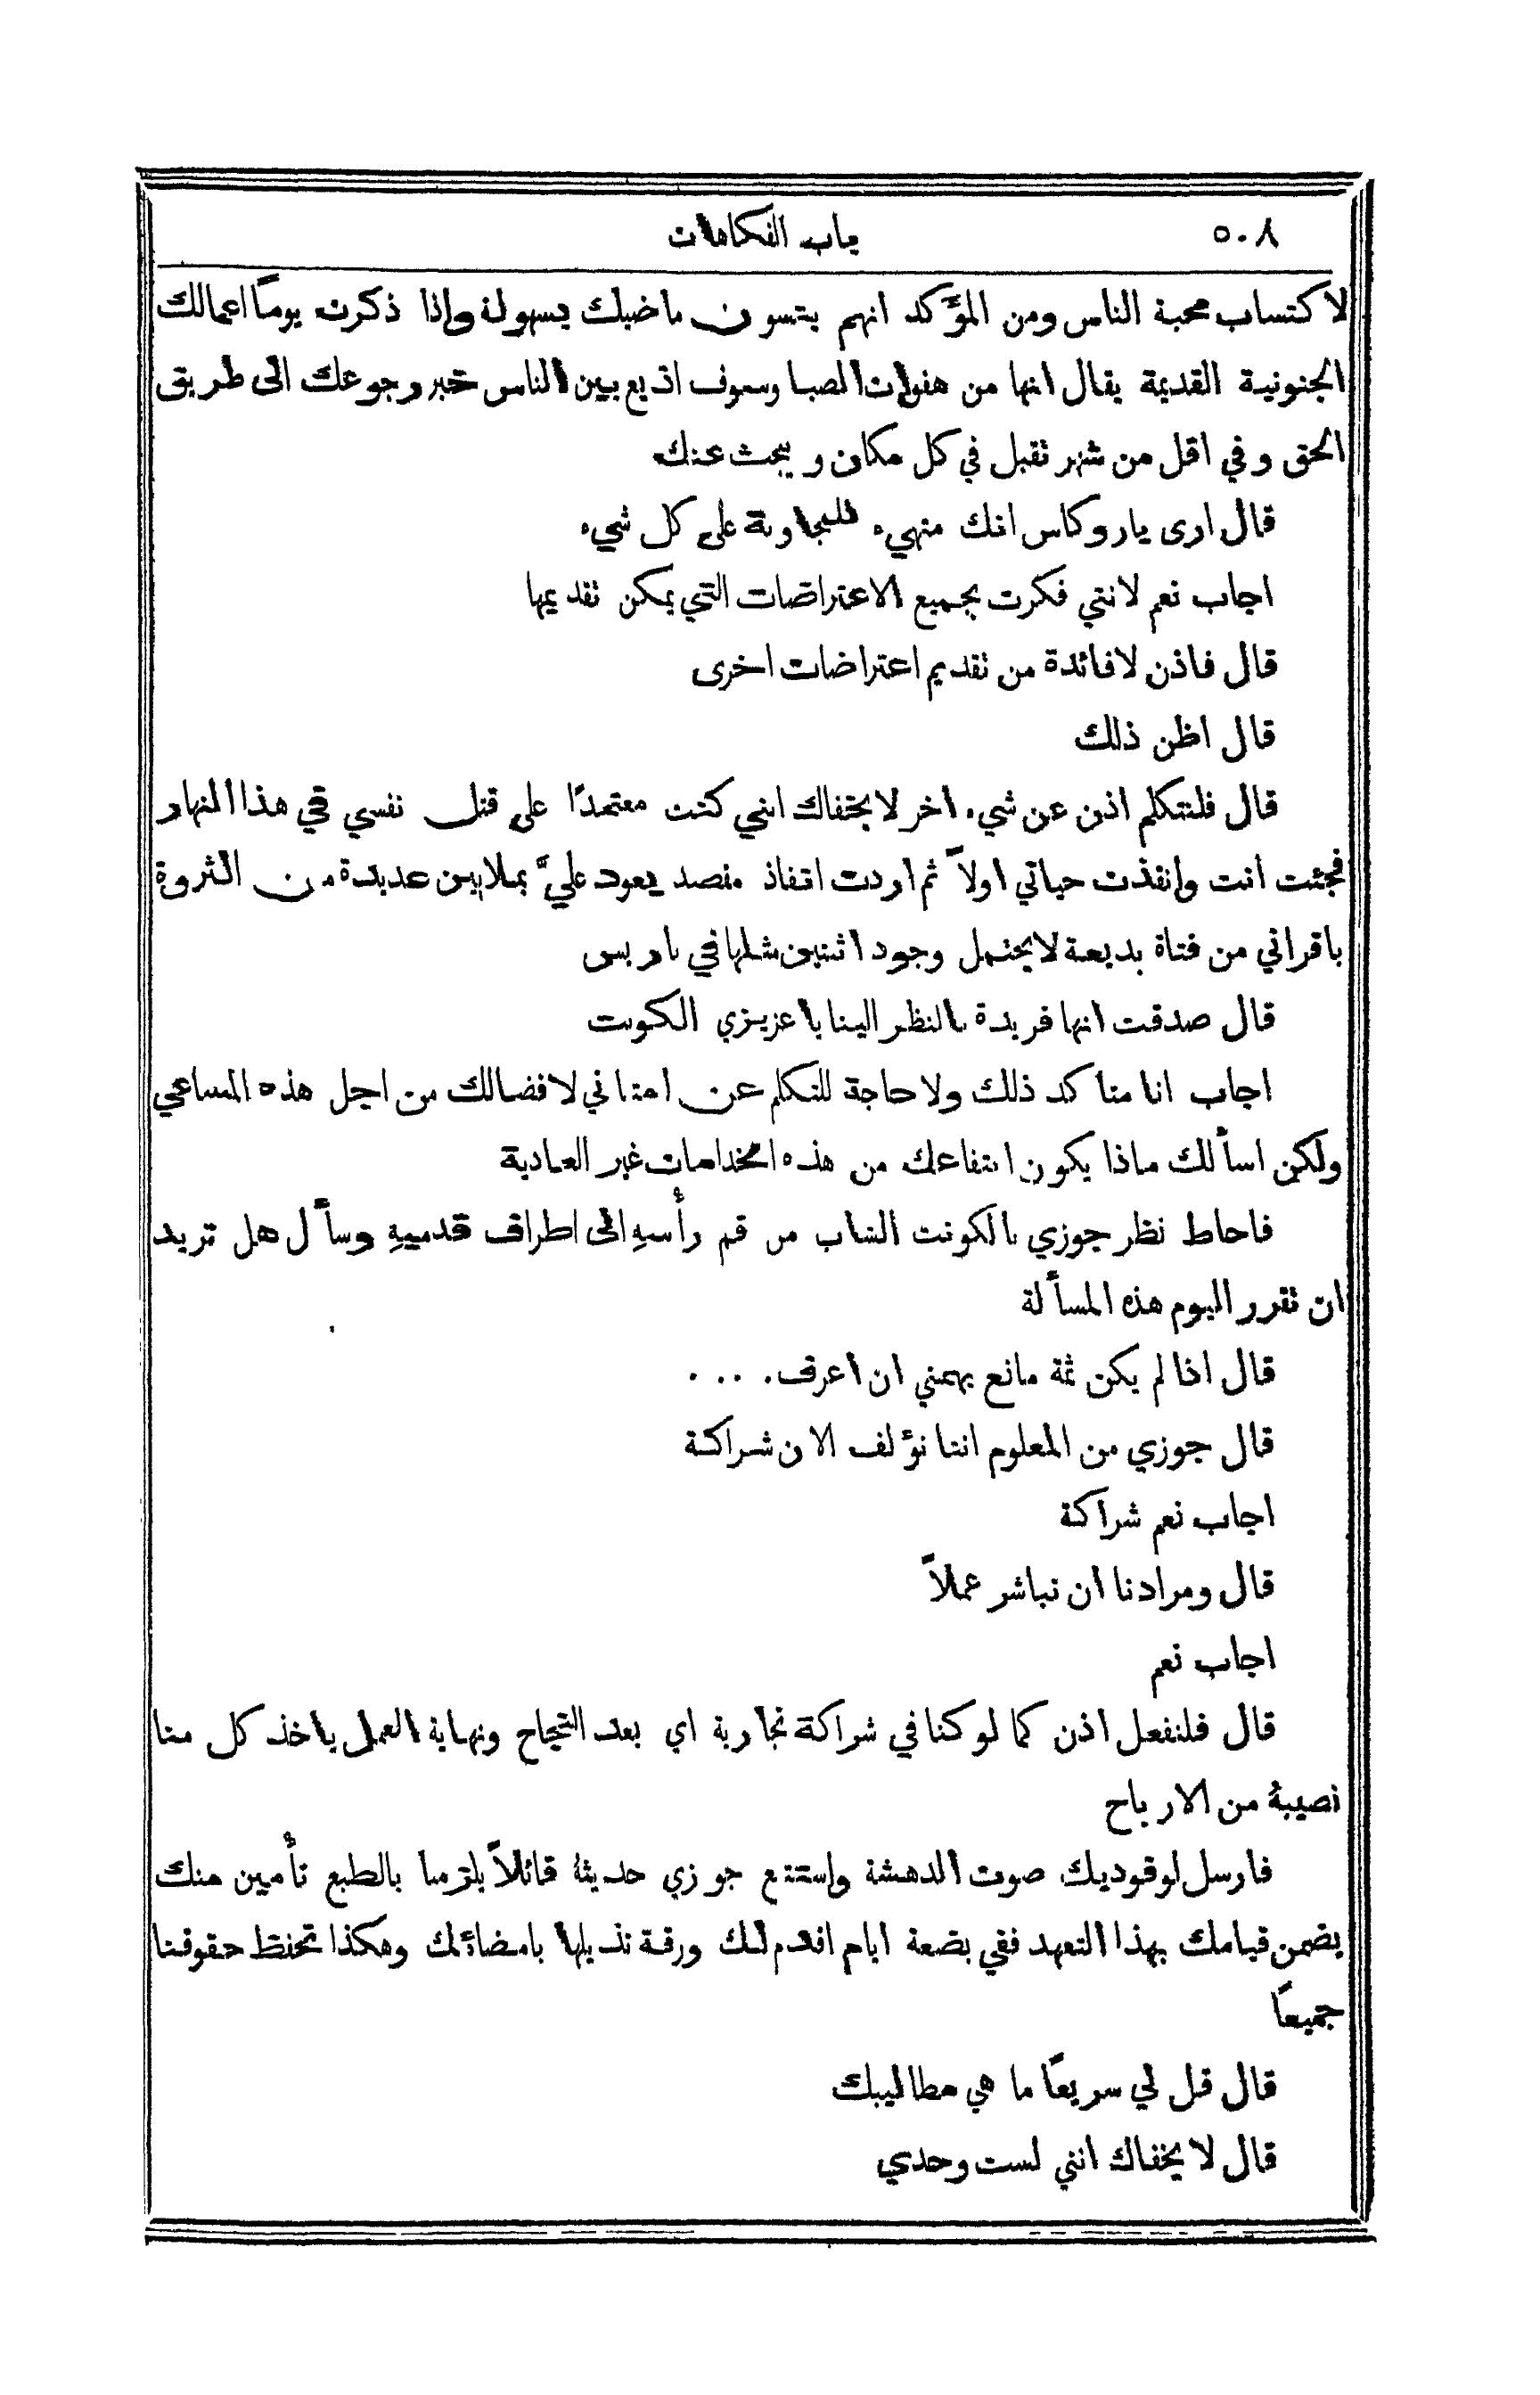 ٥٠٨ باب الفكاهات
لاكتساب محبة الناس ومن المؤكد انهم ينسون ماضيك بسهولة واذا ذكرت يوماً اعمالك
الجنونية القديمة يقال انها من هفوات الصبا وسوف اذيع بين الناس خبر رجوعك الى طريق
الحق وفي اقل من شهر تقبل في كل مكان ويبحث عنك
قال ارى ياروكاس انك منهيء للمجاوبة على كل شيء
اجاب نعم لانني فكرت بجميع الاعتراضات التي يمكن تقديمها
قال فاذن لا فائدة من تقديم اعتراضات اخرى
قال اظن ذلك
قال فلنتكلم اذن عن شيء اخر لا يخفاك انني كنت معتمداً على قتل نفسي في هذا النهار
فجئت انت وانقذت حياتي اولاً ثم اردت انفاذ مقصد يعود عليَّ بملايين عديدة من الثروة
باقراني من فتاة بديعة لا يحتمل وجود اثنين مثلها في باريس
قال صدقت انها فريدة بالنظر الينا يا عزيزي الكونت
اجاب انا متاكد ذلك ولا حاجة للتكلم عن امتناني لافضالك من اجل هذه المساعي
ولكن اسألك ماذا يكون انتفاعك من هذه الخدامات غير العادية
فاحاط نظر جوزي بالكونت الشاب من قم رأسهِ الى اطراف قدميهِ وسأل هل تريد
ان نقرر اليوم هذه المسألة
قال اذا لم يكن ثمة مانع يهمني ان اعرف. ...
قال جوزي من المعلوم اننا نؤلف الان شراكة
اجاب نعم شراكة
قال ومرادنا ان نباشر عملاً
اجاب نعم
قال فلنفعل اذن كما لو كنا في شراكة تجارية اي بعد النجاح ونهاية العمل ياخذ كل منا
نصيبهُ من الارباح
فارسل لوقوديك صوت الدهشة واستتبع جوزي حديثهُ قائلاً يلزمنا بالطبع تأمين منك
يضمن قيامك بهذا التعهد ففي بضعة ايام اقدم لك ورقة تذيلها بامضائك وهكذا تحفظ حقوقنا
جميعاً
قال قل لي سريعاً ما هي مطاليبك
قال لا يخفاك انني لست وحدي